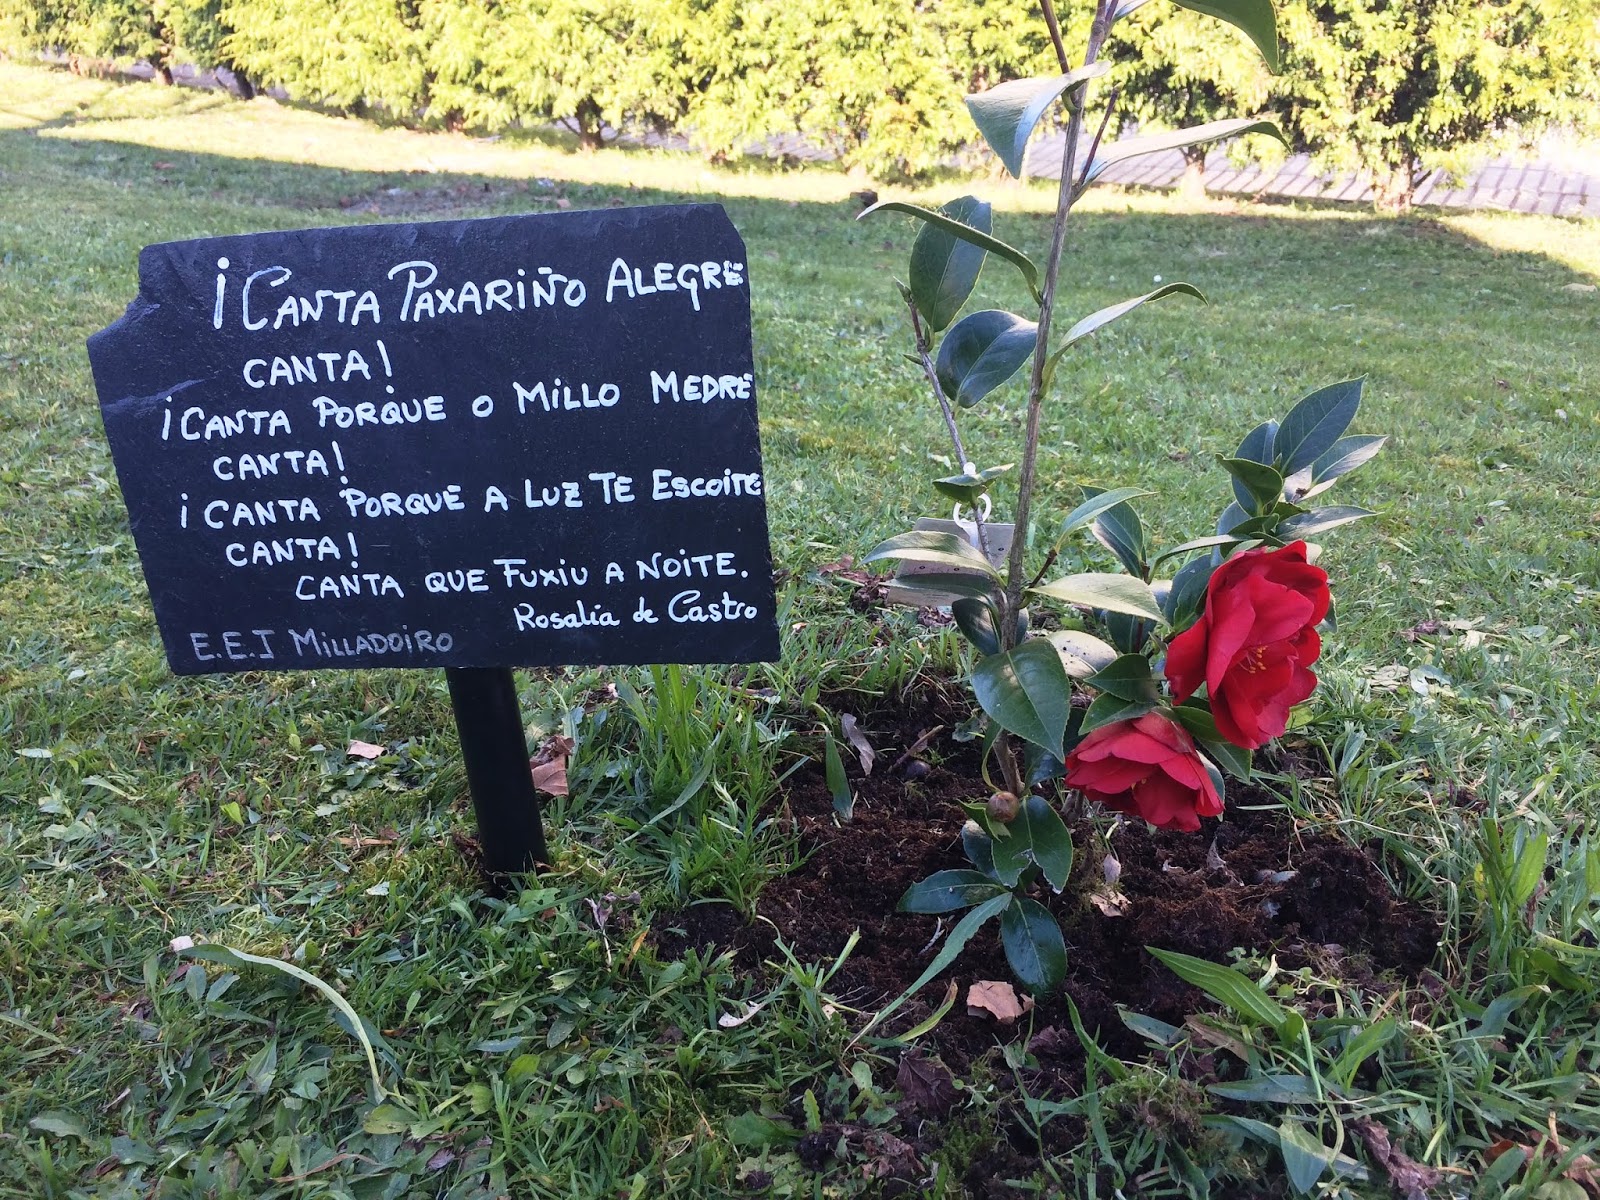 ¡CANTA PAXARIÑO ALEGRE
CANTA!
¡CANTA PORQUE O MILLO MEDRE
CANTA!
¡CANTA PORQUE A LUZ TE ESCOITE
CANTA!
CANTA QUE FUXIU A NOITE.
Rosalía de Castro
E.E.I MILLADOIRO